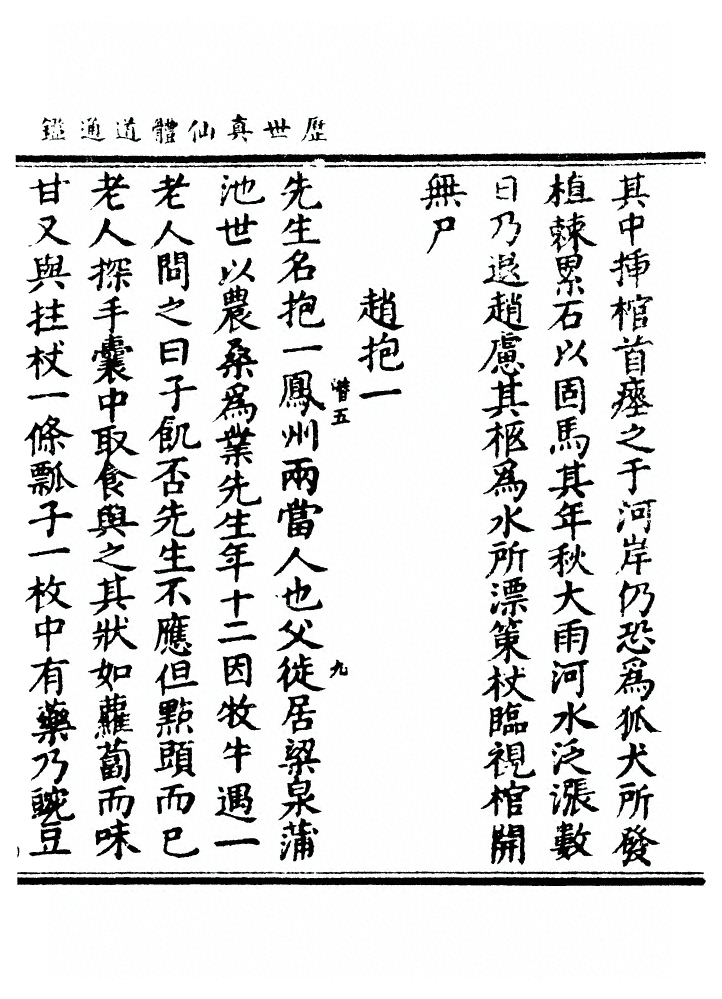 歷世真仙體道通鑑
其中揷棺首瘞之于河岸仍恐爲狐犬所發
植棘累石以固馬其年秋大雨河水泛漲數
日乃退趙慮其柩爲水所漂策杖臨視棺開
無尸
趙抱一
先生名抱一鳳州兩當人也父徙居梁泉蒲
潜五
九
池世以農桑爲業先生年十二因牧牛遇一
老人問之曰子飢否先生不應但點頭而已
老人探手囊中取食與之其狀如蘿蔔而味
甘又與拄杖一條瓢子一枚中有藥乃豌豆